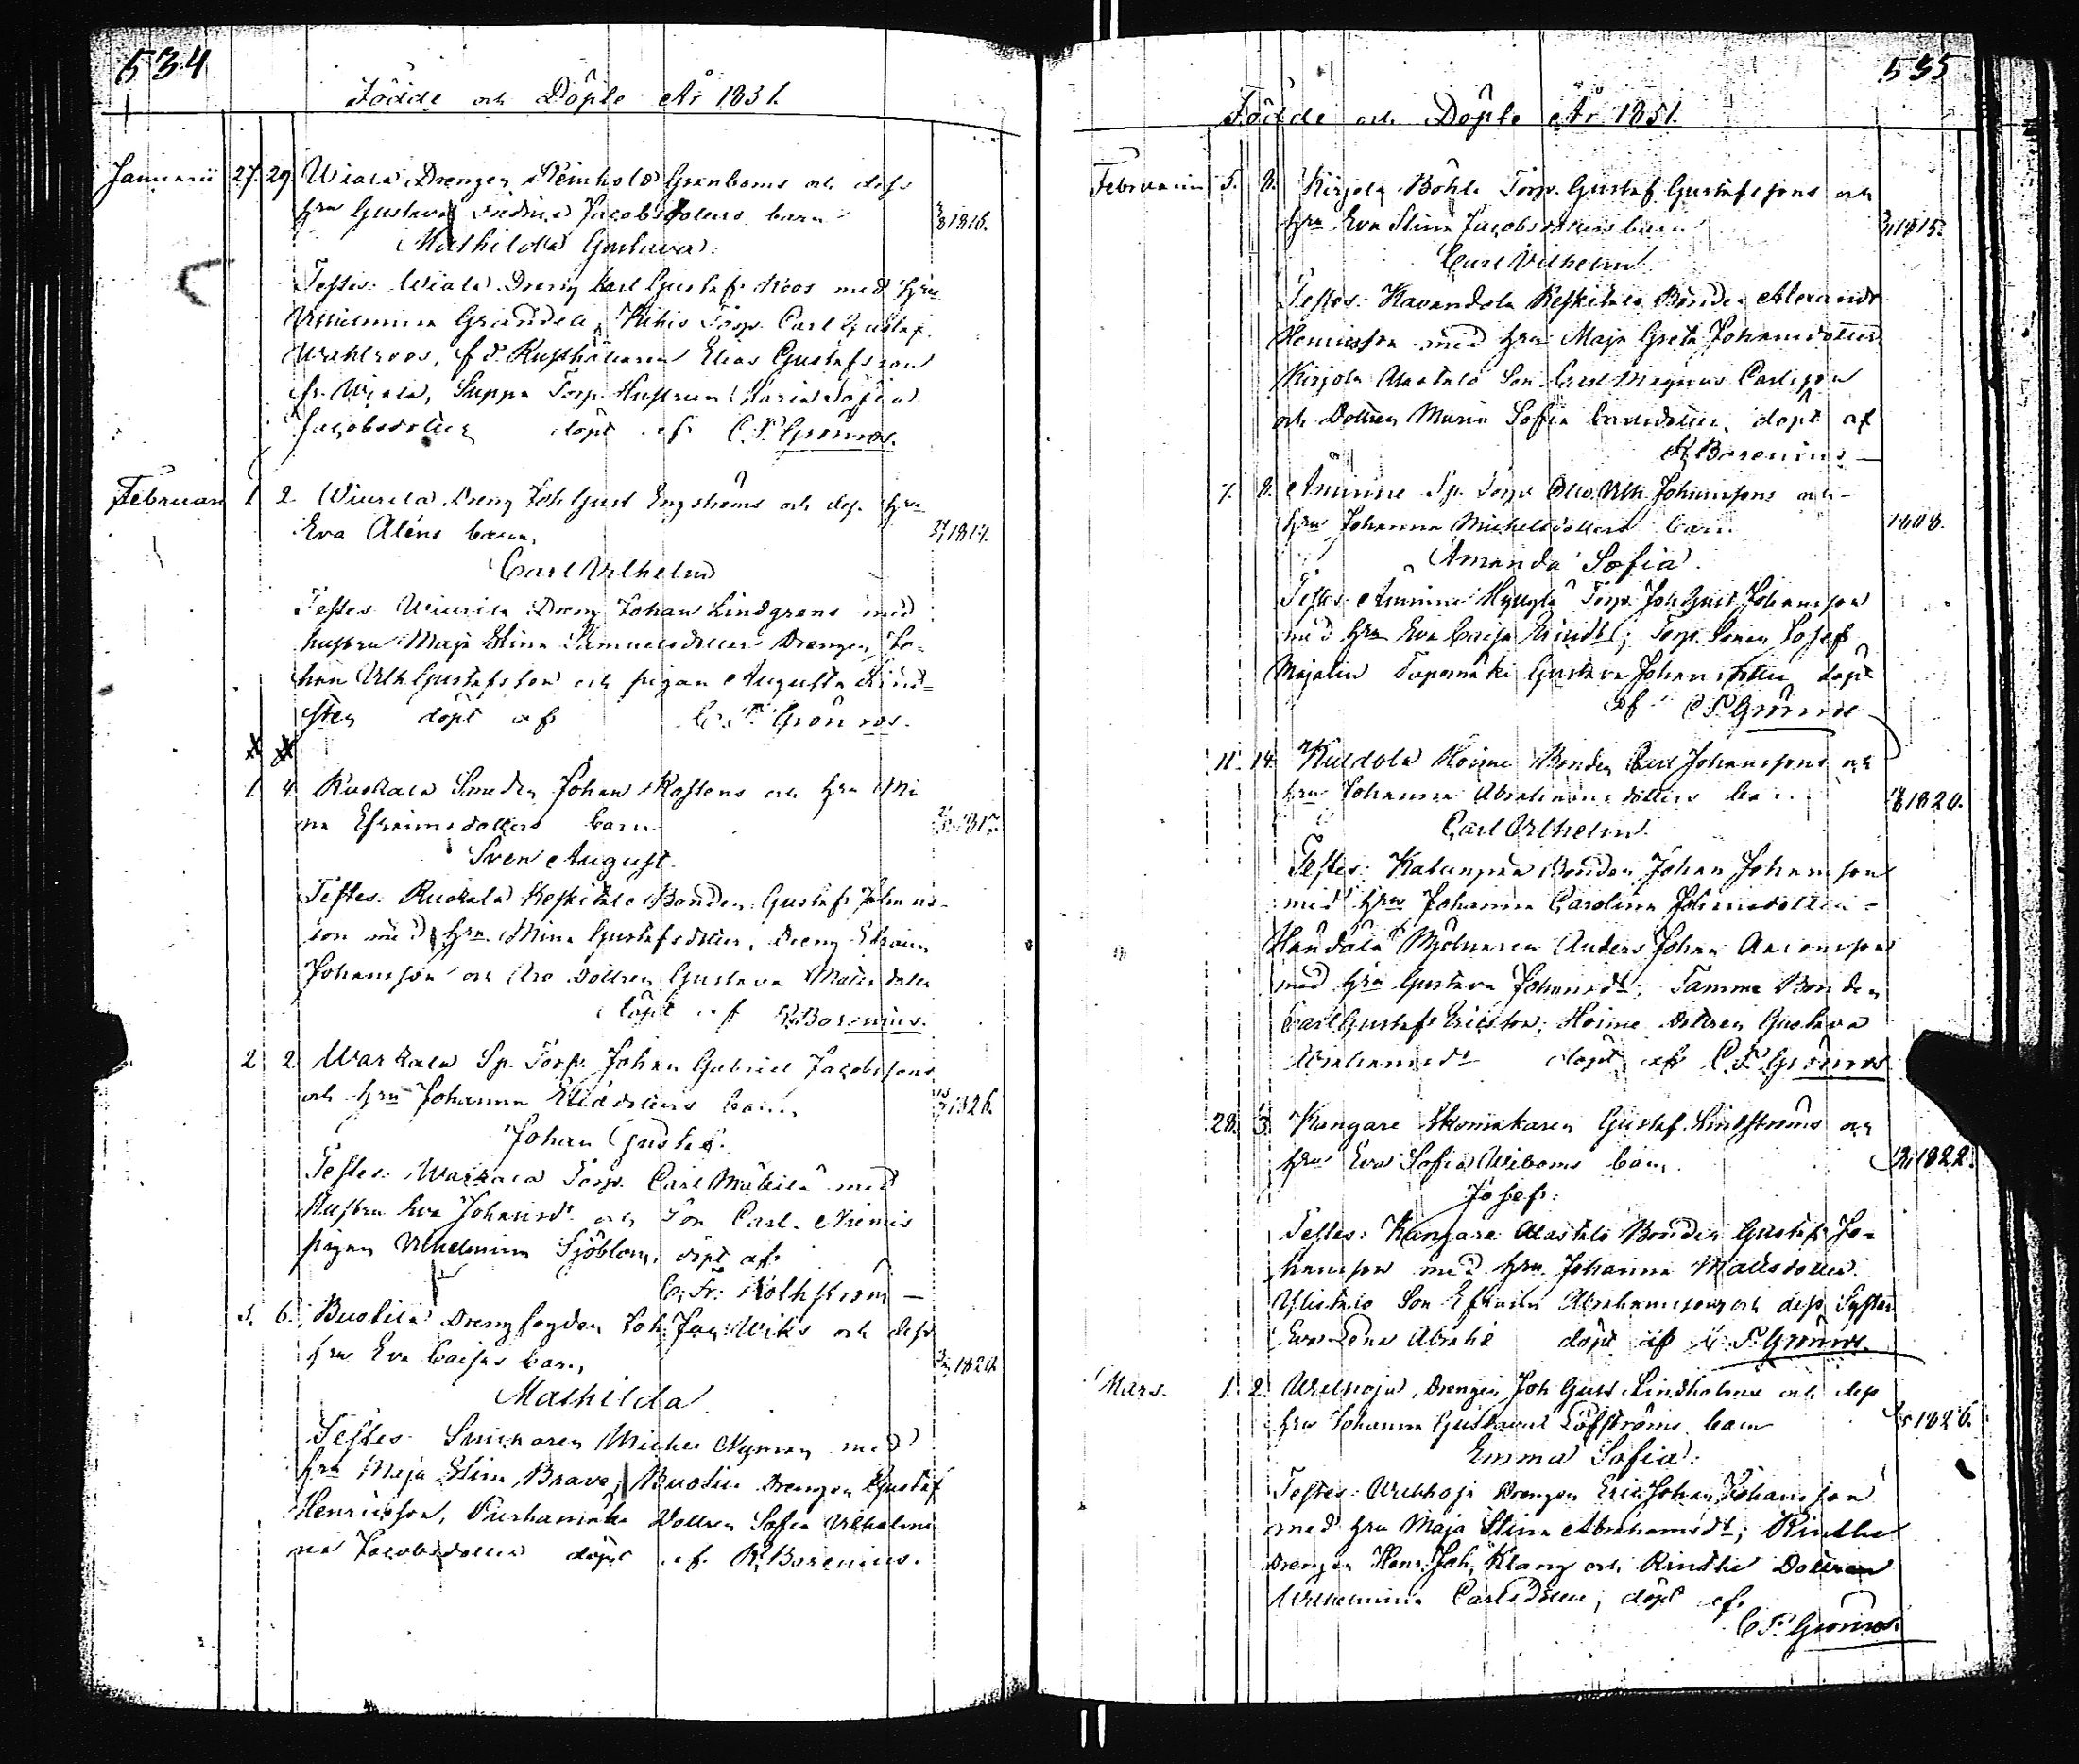 534
Födde och Döpte År 1851.
Januarii 27. 29. Wiala Drengen Reinhold Granboms och dess
hru Gustava Fredrica Jacobsdotters barn 1816.
Mathilda Gustava.
Testes: Wiala Dreng Karl Gustaf Roos med hru
Vilhelmina Grandell, Torp. Carl Gustaf
Wahlroos, f d. Rusthållaren Elias Gustafsson
fr. Wiala, Suppa Torp. Hustrun Maria Sofia
Jacobsdotter döpt af C. F. Grönroos.
Februari 1 2. Wiurila Dreng Joh Gust Engströms och dess hru
Eva Aléns barn, 1814.
Carl Vilhelm
Testes Wiurila Dreng Johan Lindgrens med
hustru Maja Stina Samuelsdotter Drengen Jo-
han Vilh Gustafsson och pigan Augusta
döpt af C. F. Grönroos.
1. 4. Ruokala Smeden Johan Rostens och hru Mi
na Efraimsdotters barn 1817.
Sven August.
Testes. Ruokala Keskitalo Bonden Gustaf Johans-
son med hru Mina Gustafsdotter, Dreng Efraim
Johansson och Aro Dottren Gustava Matsdotter
döpt af R. Borenius.
2 2 Warkala Sp. Torp. Johan Gabriel Jacobssons
och hru Johanna Eliædotters barn, 1826.
Johan Gustaf.
Testes: Warkala Torp. Carl Mäkilä med
Hustru Eva Johansdr och Son Carl. Niemis
pigan Vilhelmina Sjöblom, döpt af
C. Fr. Rothström
5. 6. Buotila Drengfogden Joh. Jac: Wiks och dess
hru Eva Caisas barn, 1820.
Mathilda
Testes Snickaren Michel Nyman med
hru Maja Stina Brave, Buotila Drengen Gustaf
Henricsson, Purhamäki Dottren Sofia Vilhelmi
na Jacobsdotter döpt af R. Borenius.
535
Födde och Döpte År 1851.
Februarii 5. 8. Kirjola Böhle Torp. Gustaf Gustafssons och
hru Eva Stina Jacobsdotters barn 1815.
Carl Vilhelm
Testes: Kavandola Keskitalo Bonden Alexander
Henricsson med hru Maja Greta Johansdotter
Kirjola Alastalo Son Carl Magnus Carlsson
och Dottren Maria Sofia Carlsdotter, döpt af
R. Borenius
7. 8. Åminne Sp. Torp. Vilh. Johanssons och
hru Johanna Michelsdotters barn 1808.
Amanda Sofia.
Testes. Åminne Torp. Joh Gust Johansson
med hru Eva Caisa; Torp. Sonen Josef
Majalin Gustava Johansdotter döpt
af C F. Grönroos
11. 14. Kuldola Hoime Bonden Carl Johanssons och
hru Johanna Abrahamsdotters barn 1820.
Carl Vilhelm.
Testes: Katunpää Bonden Johan Johansson
med hru Johanna Carolina Johansdotter
Mjölnaren Anders Johan Aaronsson
med hru Gustava Johansdr. Tamme Bonden
Carl Gustaf Ericsson, Hoime Dottren Gustava
Abrahamsdr döpt af C. F. Grönroos
28. 3. Kangare Skomakaren Gustaf Lindströms och
hru Eva Sofia Wiboms barn, 1822.
Josef:
Testes: Kangare Alastalo Bonden Gustaf Jo-
hansson med hru Johanna Matsdotter.
Ylistalo Son Efraim Abrahamsson och dess Syster
Eva Lena Abrahs döpt af C. F. Grönroos.
Mars. 1. 2. Drengen Joh Gust Lindholms och dess
hru Johanna Gustava Löfströms barn 1826.
Emma Sofia:
Testes: Drengen Eric Johan Johansson
med hru Maja Stina Abrahamsdr; Rindhe
Drengen Henr. Joh, Klang och Rindhe Dottren
Vilhelmina Carlsdotter, döpt af
C. F. Grönroos.